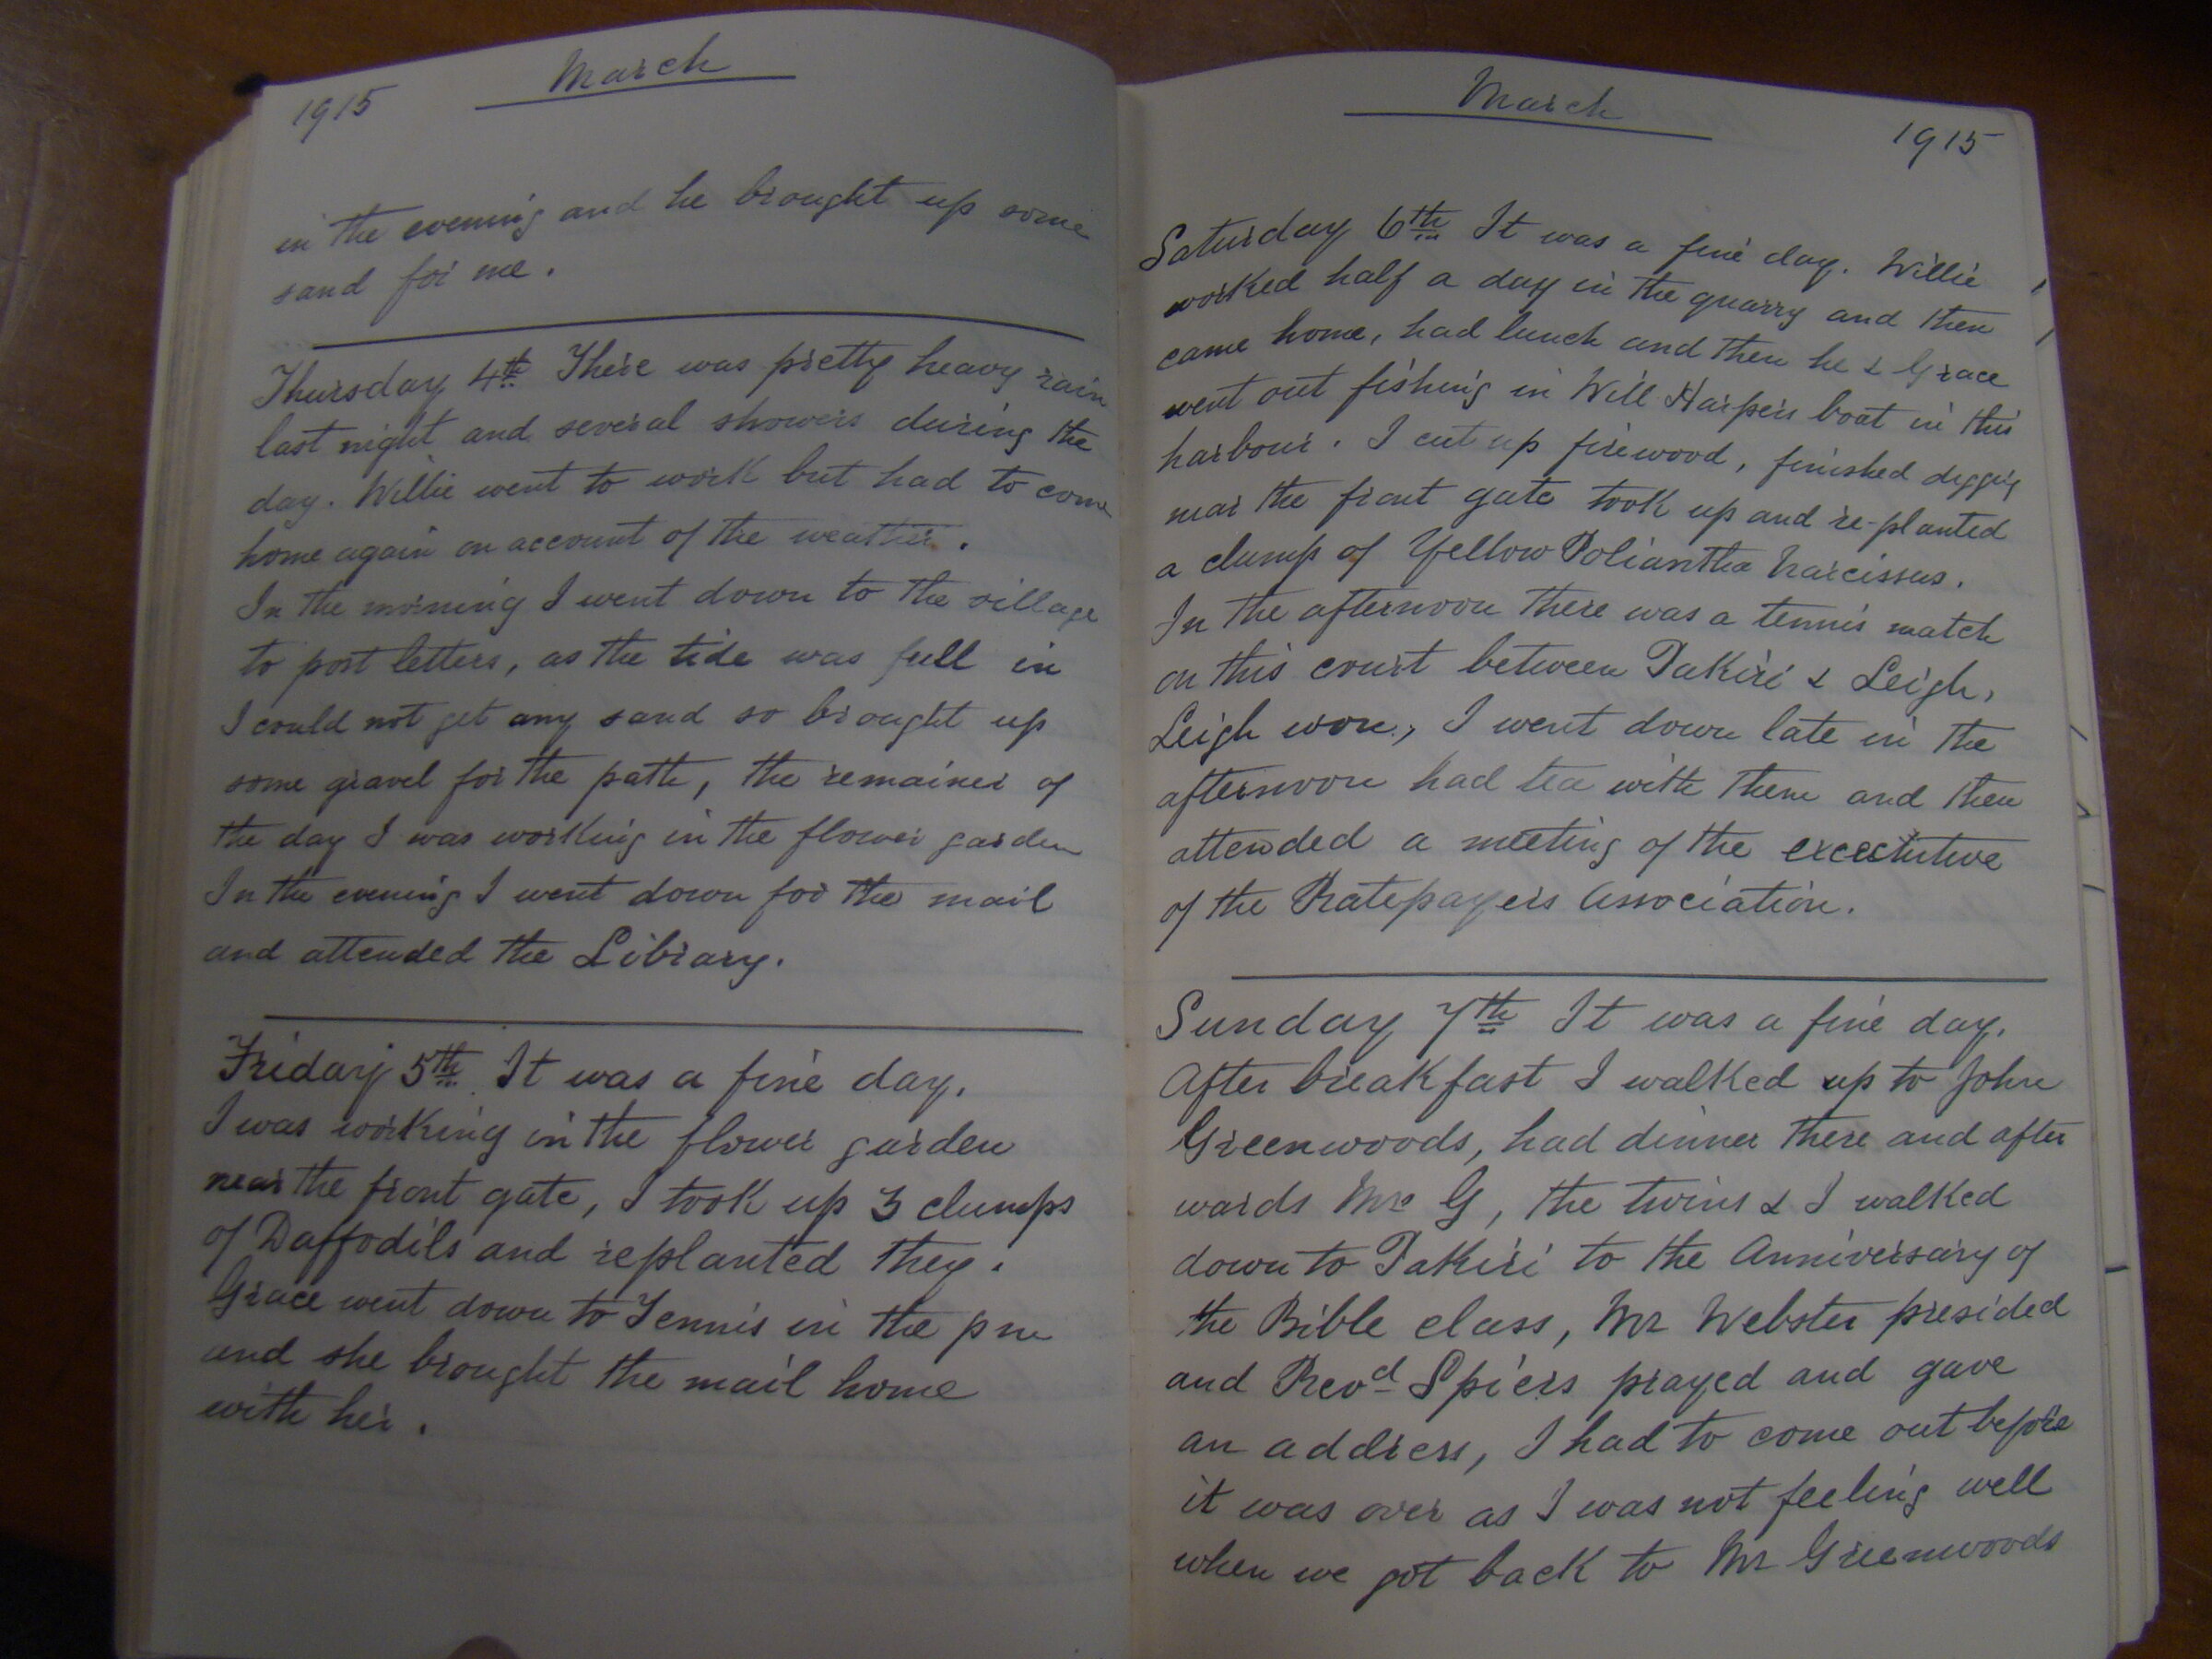 1915
March
in the evening and he brought up some
sand for me.
Thursday 4th There was pretty heavy rain
last night and several showers during the
day. Willie went to work but had to come
home again on account of the weather.
In the morning I went down to the village
to post letters, as the tide was full in
I could not get any sand so brought up
some gravel for the path, the remainer of
the day I was working in the flower garden
In the evening I went down for the mail
and attended the Library.
Friday 5th It was a fine day.
I was working in the flower garden
near the front gate, I took up 3 clumps
of Daffodils and replanted they.
Grace went down to Tennis in the pm
and she brought the mail home
with her.
March
1915
Saturday 6th It was a fine day. Willie
worked half a day in the quarry and then
came home, had lunch and then he & Grace
went out fishing in Will Harpers boat in this
harbour. I cut up firewood, finished digging
near the front gate took up and re-planted
a clump of Yellow Poliantha Narcissus.
In the afternoon there was a tennis match
on this court between Pakiri & Leigh,
Leigh won, I went down late in the
afternoon had tea with them and then
attended a meeting of the excectutive
of the Ratepayers Association.
Sunday 7th It was a fine day.
After breakfast I walked up to John
Greenwoods, had dinner there and after
wards Mrs G, the twins & I walked
down to Pakiri to the Anniversary of
the Bible class, Mr Webster presided
and Revd Spiers prayed and gave
an address, I had to come out before
it was over as I was not feeling well
when we got back to Mr Greenwoods